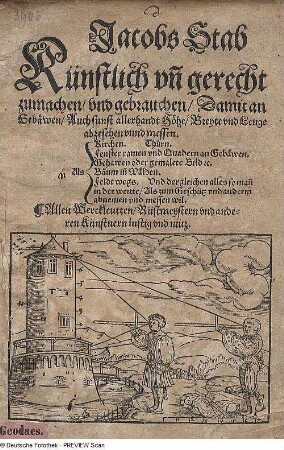 Jacobs Stab
Künstlich vñ gerecht
zumachen / vnd gebrauchen / Damit an
Gebäwen / Auch sunst allerhandt Höhe / Breyte vnd Lenge
abzesehen vnnd messen.
Kirchen. Thürn.
Fenster ramen vnd Quadern an Gebäwen.
Gehawen oder gemalete Bild ꝛc.
Als Bäum in Wälden.
Feldt wegs. Vnd dergleichen alles so man
in der weitte / Als zum Geschütz vnd anderm
abnemen vnd messen wil.
Allen Werckleutten / Büchsmeystern vnd ande-
ren Künstnern lustig vnd nütz.
Geodaes.
© Deutsche Fotothek - PREVIEW Scan